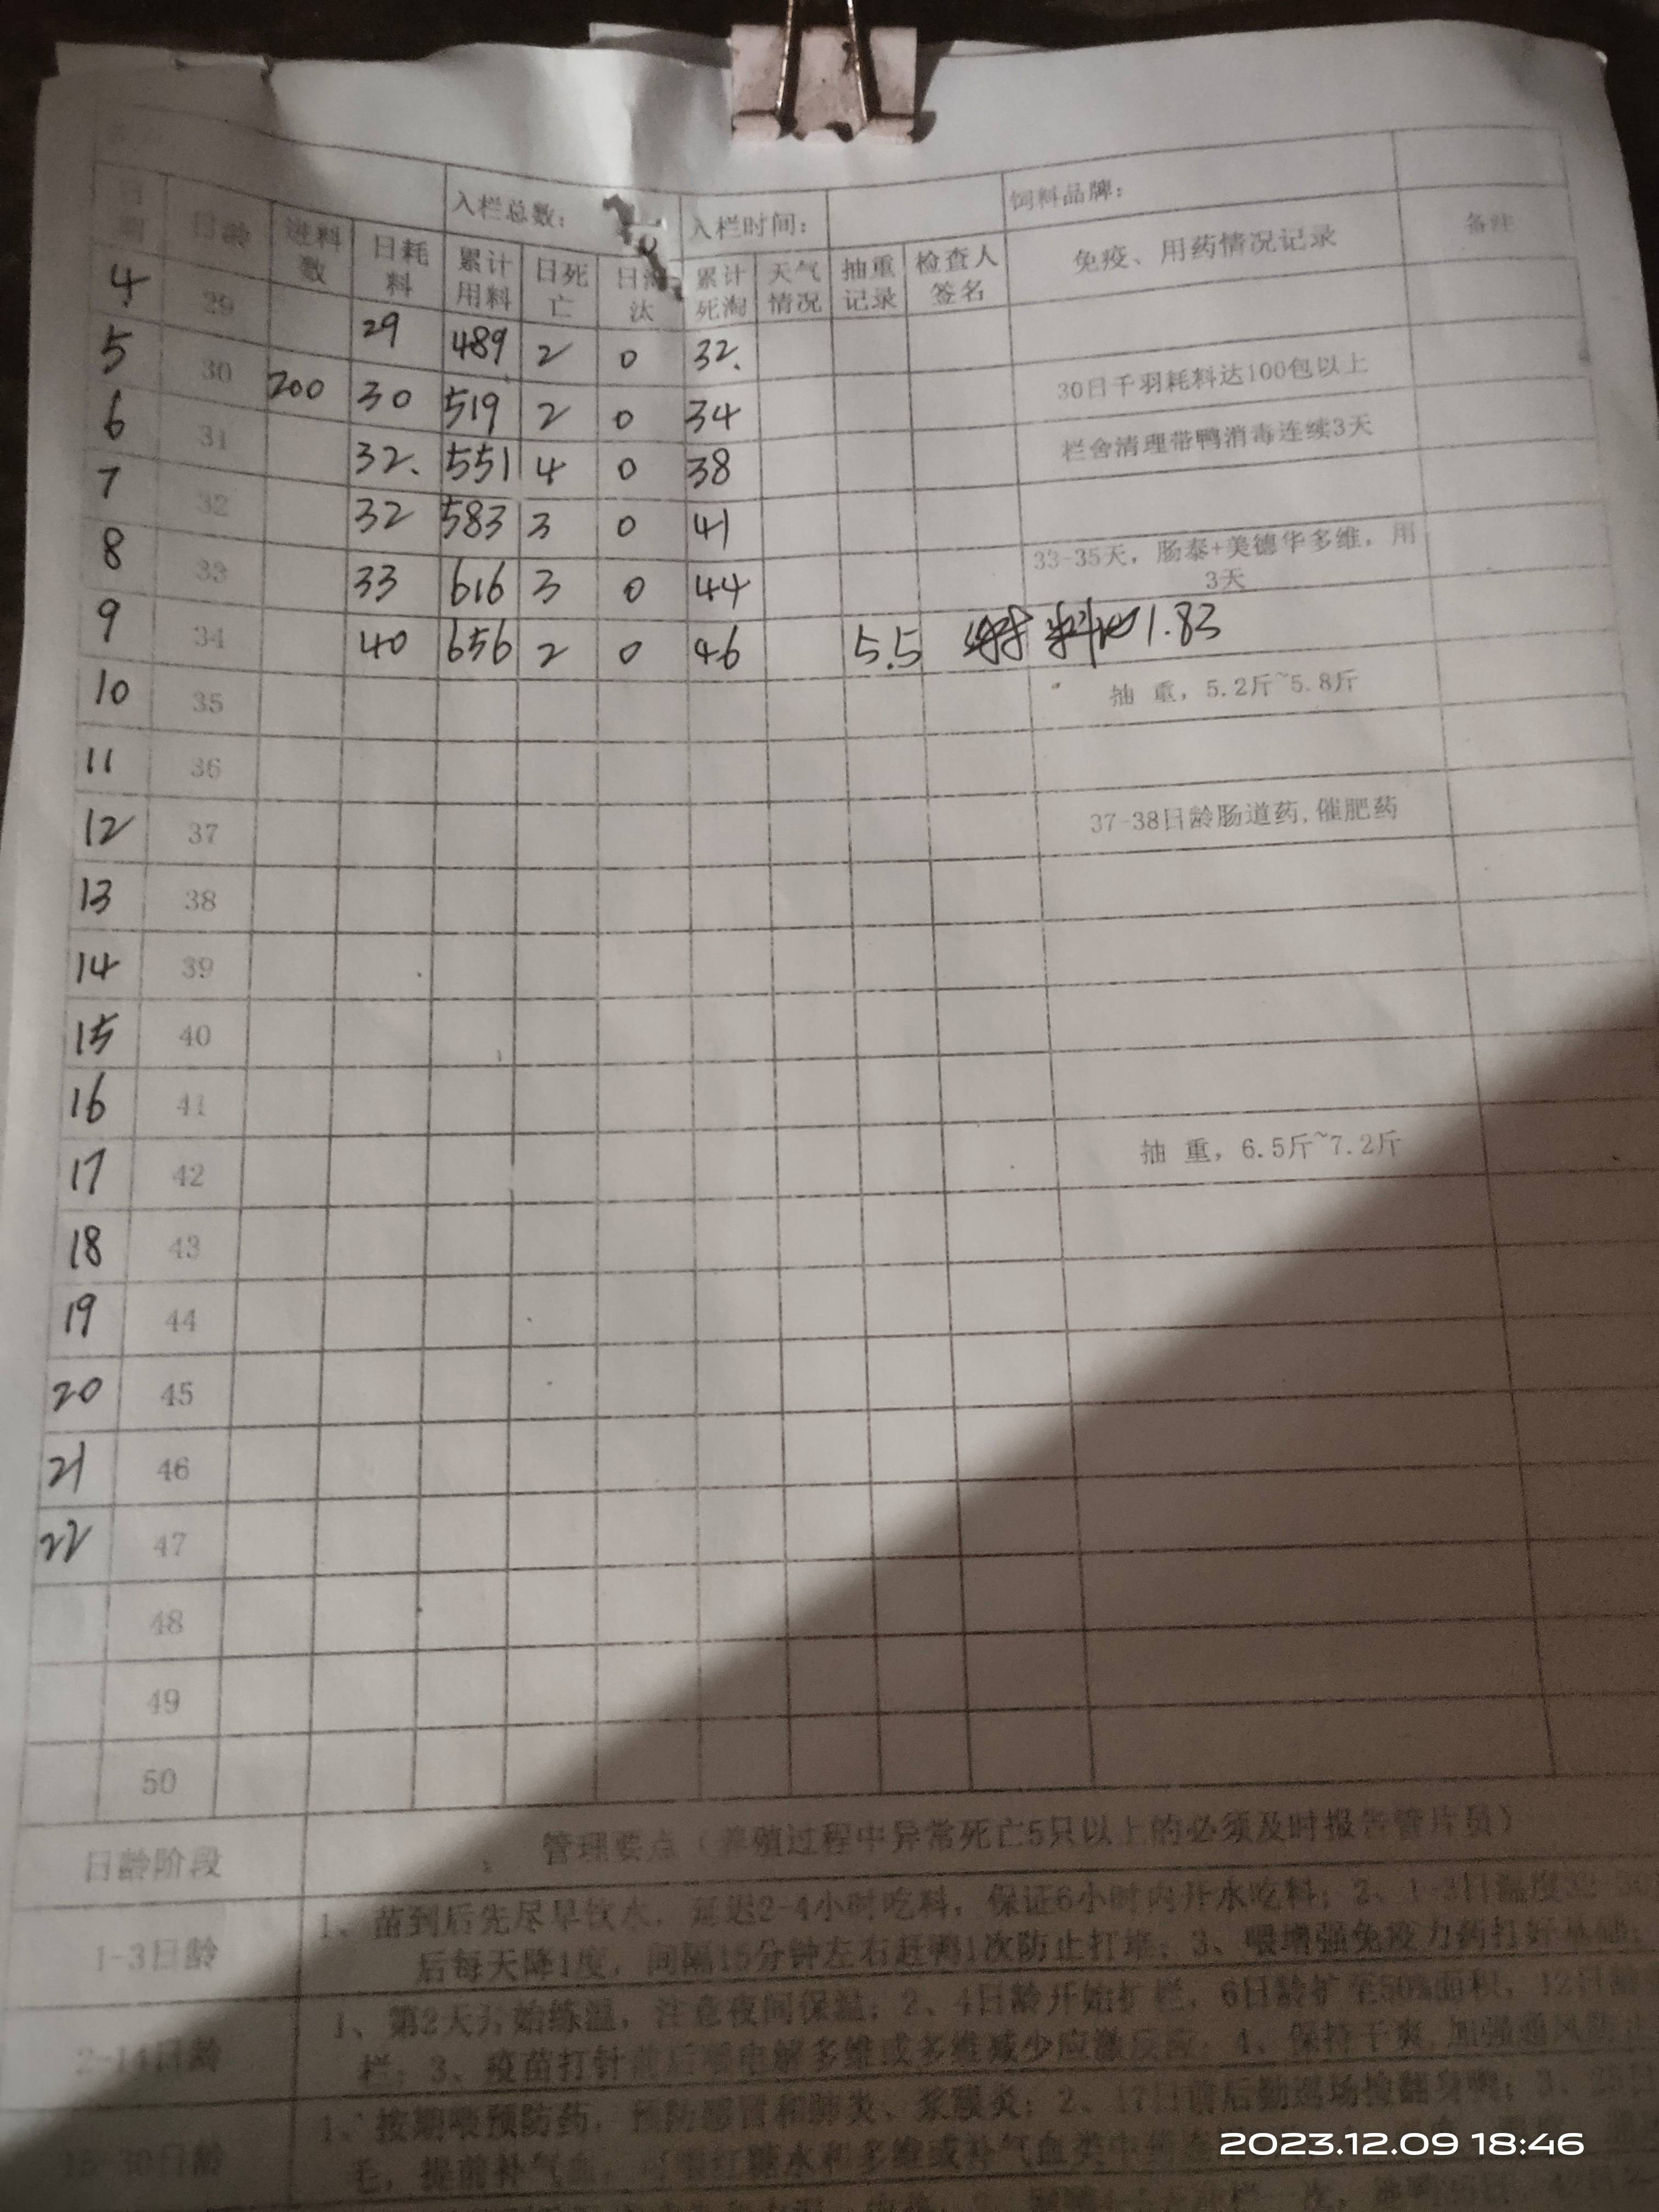 入栏总数： 入栏时间： 饲料品牌：
日期 日龄 进料数 日耗料 累计用料 日死亡 日淘汰 累计死淘 天气情况 抽重记录 检查人签名 免疫、用药情况记录 备注
4 29 29 489 2 0 32.
5 30 200 30 519 2 0 34 30日千羽耗料达100包以上
6 31 32. 551 4 0 38 栏舍清理带鸭消毒连续3天
7 32 32 583 3 0 41
8 33 33 616 3 0 44 33-35天，肠泰+美德华多维，用3天
9 34 40 656 2 0 46 5.5 料比1.83
10 35 抽 重，5.2斤~5.8斤
11 36
12 37 37-38日龄肠道药,催肥药
13 38
14 39
15 40
16 41
17 42 抽 重，6.5斤~7.2斤
18 43
19 44
20 45
21 46
22 47
48
49
50
日龄阶段 管理要点（养殖过程中异常死亡5只以上的必须及时报告管片员）
1-3日龄 1、苗到后先尽早饮水，延迟2-4小时吃料，保证6小时内开水吃料；2、1-3日温度32
后每天降1度，间隔15分钟左右赶鸭1次防止打堆；3、喂增强免疫力药打好基础；
2-14日龄 1、第2天开始练温，注意夜间保温；2、4日龄开始扩栏，6日龄扩至50%面积，12日龄
栏；3、疫苗打针前后喂电解多维或多维减少应激反应；4、保持干爽,加强通风防止
15-30日龄 1、按期喂预防药，预防感冒和肺炎、浆膜炎；2、17日前后勤巡场捡翻身鸭；3、
毛，提前补气血，
2023.12.09 18:46